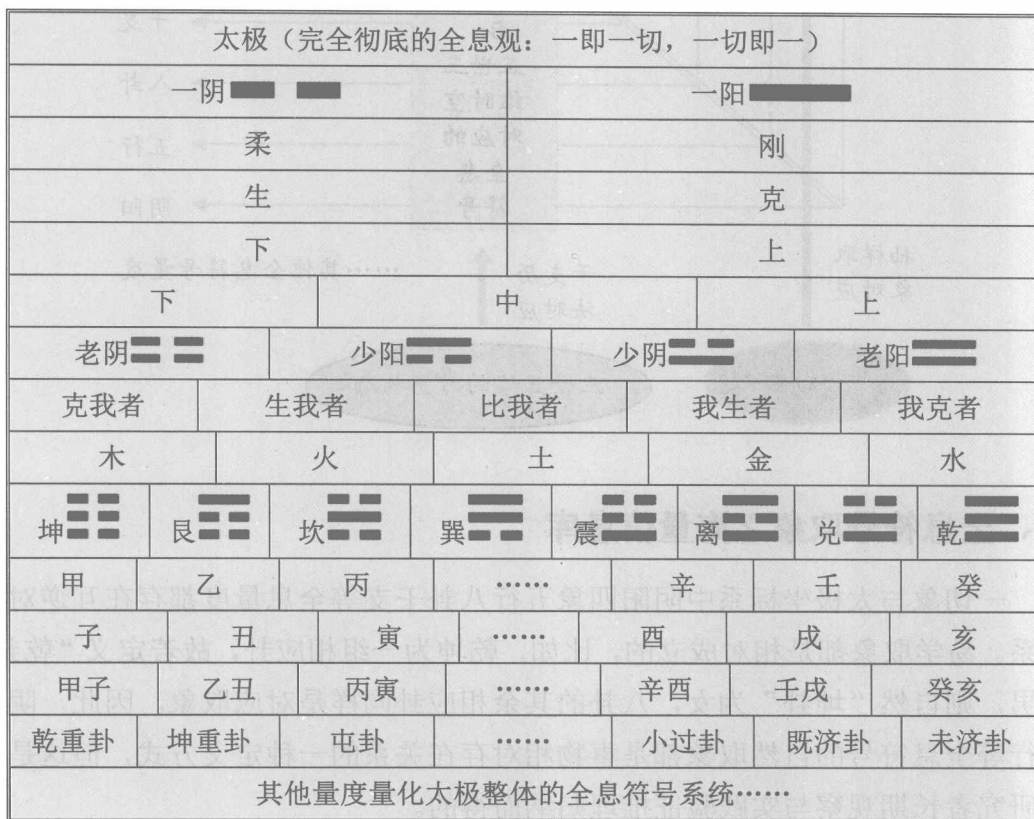 太极（完全彻底的全息观：一即一切，一切即一）
一阴 一阳
柔 刚
生 克
下 上
下 中 上
老阴 少阳 少阴 老阳
克我者 生我者 比我者 我生者 我克者
木 火 土 金 水
坤 艮 坎 巽 震 离 兑 乾
甲 乙 丙 …… 辛 壬 癸
子 丑 寅 …… 酉 戌 亥
甲子 乙丑 丙寅 …… 辛酉 壬戌 癸亥
乾重卦 坤重卦 屯卦 …… 小过卦 既济卦 未济卦
其他量度量化太极整体的全息符号系统……